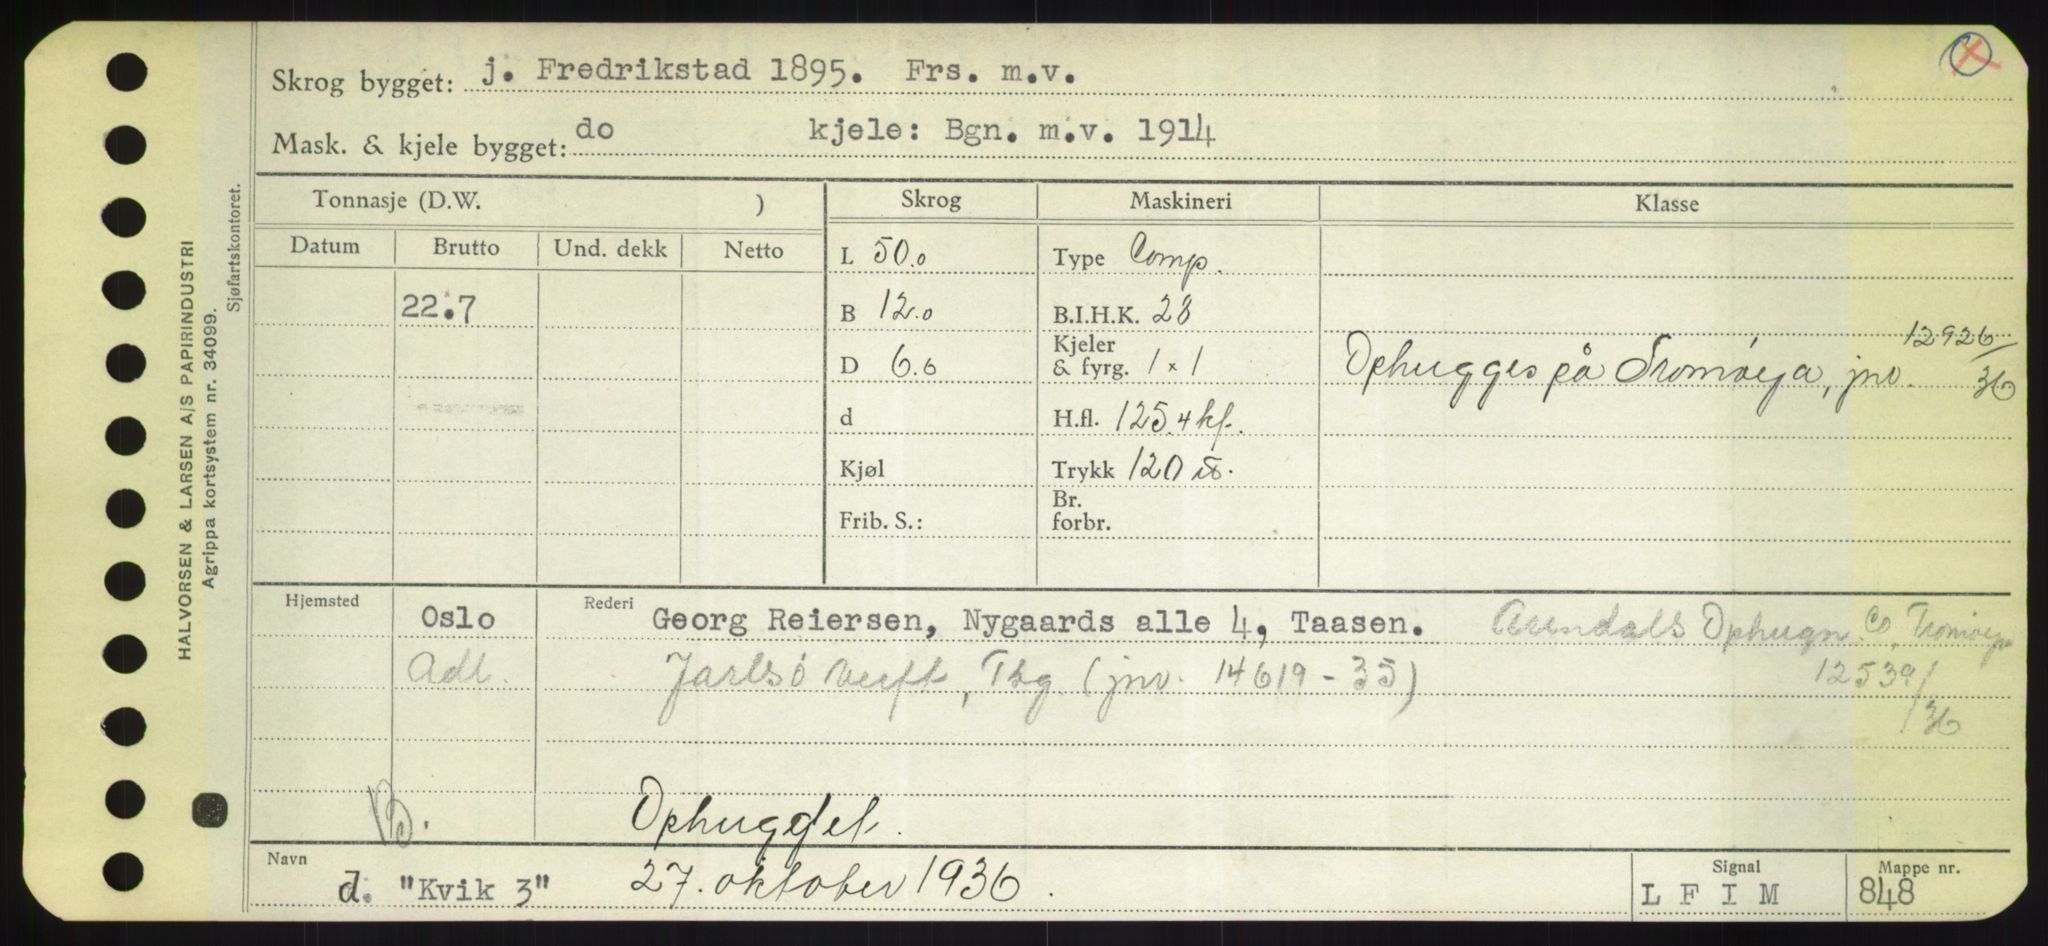 Skrog bygget: j. Fredrikstad 1895. Frs. m.v.
Mask. & kjele bygget: do kjele: Bgn. m.v. 1914
Tonnasje (D.W. ) Skrog Maskineri Klasse
Datum Brutto Und. dekk Netto
L 50.0 Type Comp.
22.7 B 12.0 B.I.H.K. 28
D 6.6 Kjeler & fyrg. 1 x 1 Ophugges på Tromøya, jnv. 12926/36
d H.fl. 125.4 kf.
Kjøl Trykk 120 lb.
Frib. S.: Br. forbr.
Hjemsted Oslo Rederi Georg Reiersen, Nygaards alle 4, Taasen. Arendals Ophugn. Co, Tromøya
Adl. Jarlsö Verft, Tbg (jnv. 14619-35) 12539/36
Ophugget.
Navn d. "Kvik 3" 27. oktober 1936. Signal L F I M Mappe nr. 848
HALVORSEN & LARSEN A/S PAPIRINDUSTRI
Agrippa kortsystem nr. 34099.
Sjøfartskontoret.